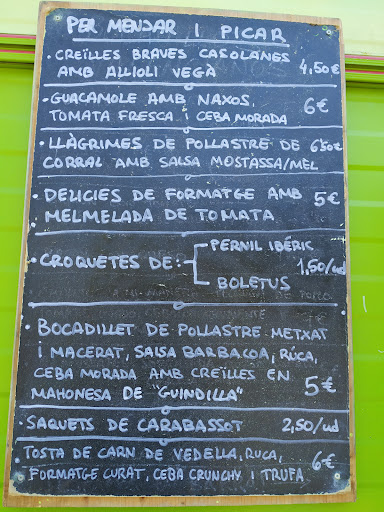 PER MENJAR I PICAR
· CREÏLLES BRAVES CASOLANES
AMB ALLIOLI VEGÀ 4,50€
· GUACAMOLE AMB NAXOS,
TOMATA FRESCA I CEBA MORADA 6€
· LLÀGRIMES DE POLLASTRE DE 6,50€
CORRAL AMB SALSA MOSTASSA/MEL
· DELICIES DE FORMATGE AMB 5€
MELMELADA DE TOMATA
· CROQUETES DE: PERNIL IBÉRIC
BOLETUS 1,50/ud
· BOCADILLET DE POLLASTRE METXAT
I MACERAT, SALSA BARBACOA, RÚCA,
CEBA MORADA AMB CREÏLLES EN
MAHONESA DE "GUINDILLA" 5€
· SAQUETS DE CARABASSOT 2,50/ud
· TOSTA DE CARN DE VEDELLA, RUCA, 6€
FORMATGE CURAT, CEBA CRUNCHY I TRUFA